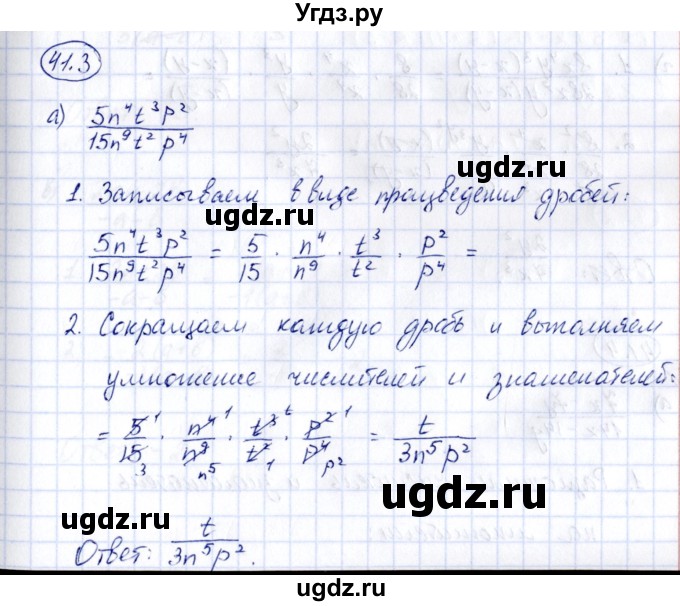 Угдз.ру
41.3
а) 5n⁴t³p² / 15n⁹t²p⁴
ugdz.ru ugdz.ru
1. Записываем в виде произведения дробей:
ugdz.ru
5n⁴t³p² / 15n⁹t²p⁴ = 5/15 · n⁴/n⁹ · t³/t² · p²/p⁴ =
ugdz.ru
2. Сокращаем каждую дробь и выполняем
умножение числителей и знаменателей:
= 5¹/15₃ · n⁴ ¹/n⁹ n⁵ · t³ t/t² 1 · p² ¹/p⁴ p² = t / 3n⁵p²
ugdz.ru ugdz.ru
ugdz.ru
Ответ: t / 3n⁵p².
ugdz.ru